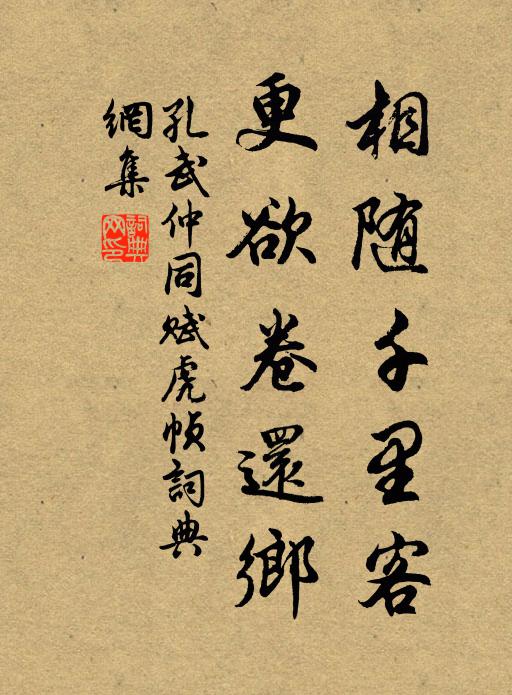 相随千里客
更欲卷還鄉
孔武仲同赋虎帧詞典
網集
詞典
网印